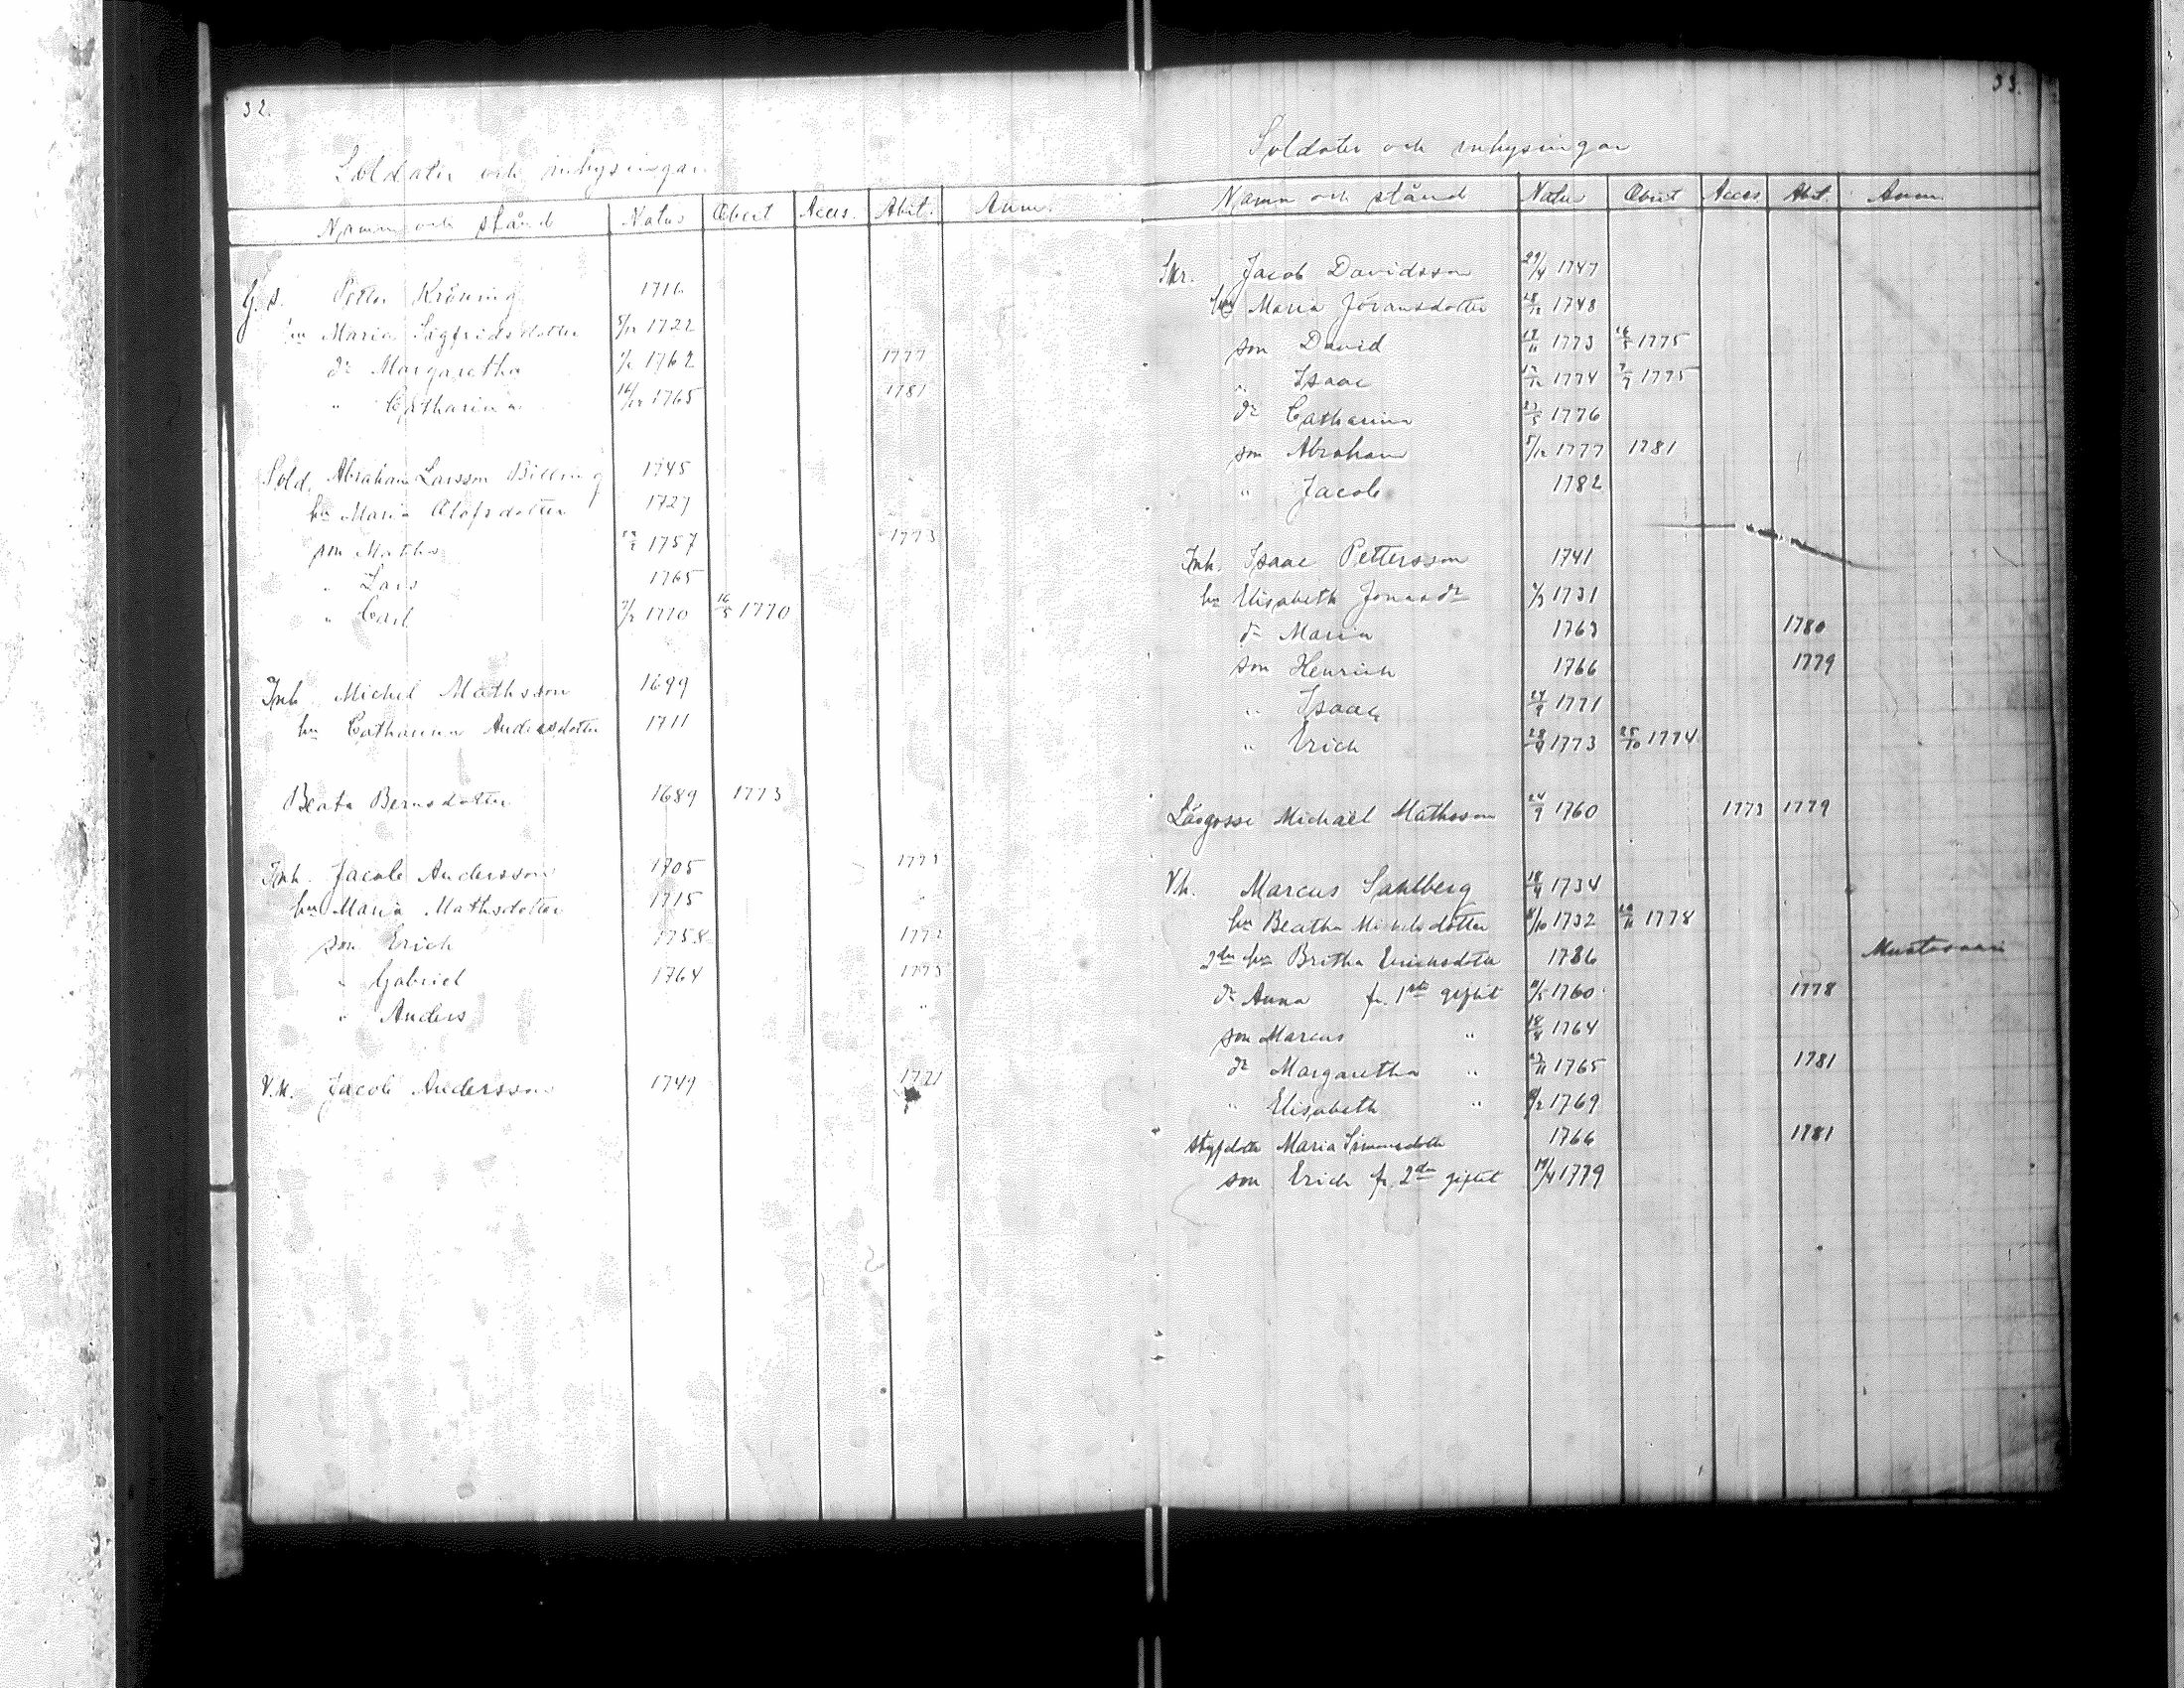 32.
Soldater och inhysingar
Namn och stånd Natus Obiit Acces. Abit. Anm.
G. s. Petter Kröning 1716
hu Maria Sigfridsdotter 5/12 1722
dr Margaretha 1762 1777
" Catharina 16/12 1765 1781
Sold. Abraham Larsson Billing 1745
hu Maria Olofsdotter 1727
son Maths 1757 1773
" Lars 1765
" Carl 1770 16/5 1770
Inh. Michel Mathsson 1699
hu Catharina Andersdotter 1711
Beata Bernsdotter 1689 1773
Inh. Jacob Andersson 1705 1773
hu Maria Mathsdotter 1715 "
son Erich 1758 1772
" Gabriel 1764 1773
" Anders "
V.h. Jacob Andersson 1749 1771
33.
Soldater och inhysingar
Namn och stånd Natus Obiit Acces Abit. Anm.
Skr. Jacob Davidsson 29/4 1747
hu Maria Jöransdotter 28/12 1748
son David 1773 16/5 1775
" Isaac 1774 7/7 1775
dr Catharina 1776
son Abraham 5/12 1777 1781
" Jacob 1782
Inh. Isaac Pettersson 1741
hu Elisabeth Jonasdr 1731
dr Maria 1763 1780
son Henrich 1766 1779
" Isaac 24/9 1771
" Erich 28/9 1773 25/10 1774
Läsgosse Michaël Mathsson 24/9 1760 1773 1779
V.h. Marcus Sahlberg 1734
hu Beatha Michelsdotter 1732 1778
2dn hu Britha Erichsdotter 1736 Mustasaari
dr Anna fr. 1sta giftet 1760 1778
son Marcus " 1764
dr Margaretha " 1765 1781
" Elisabeth " 1769
styfdotter Maria Simonsdotter 1766 1781
son Erich fr. 2dra giftet 19/4 1779